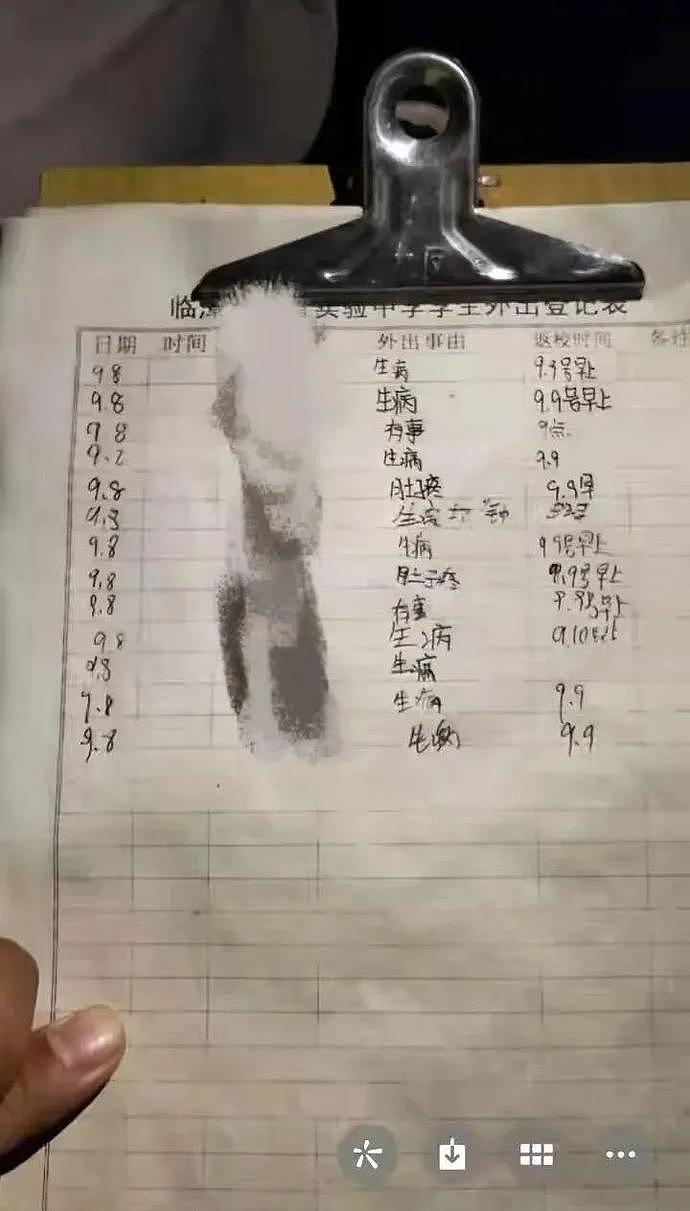 临 实验中学学生外出登记表
日期 时间 外出事由 返校时间
9 8 生病 9.9号早上
9.8 生病 9.9号早上
9 8 有事 9点
9.2 生病 9.9
9.8 肚疼 9.9早
9.8
9.8 生病 9 9号早上
9.8 肚子疼 9.9号早上
9.8 有事 9.9号早上
9 8 生病 9.10早上
9.8 生病
9.8 生病 9.9
9.8 生病 9.9